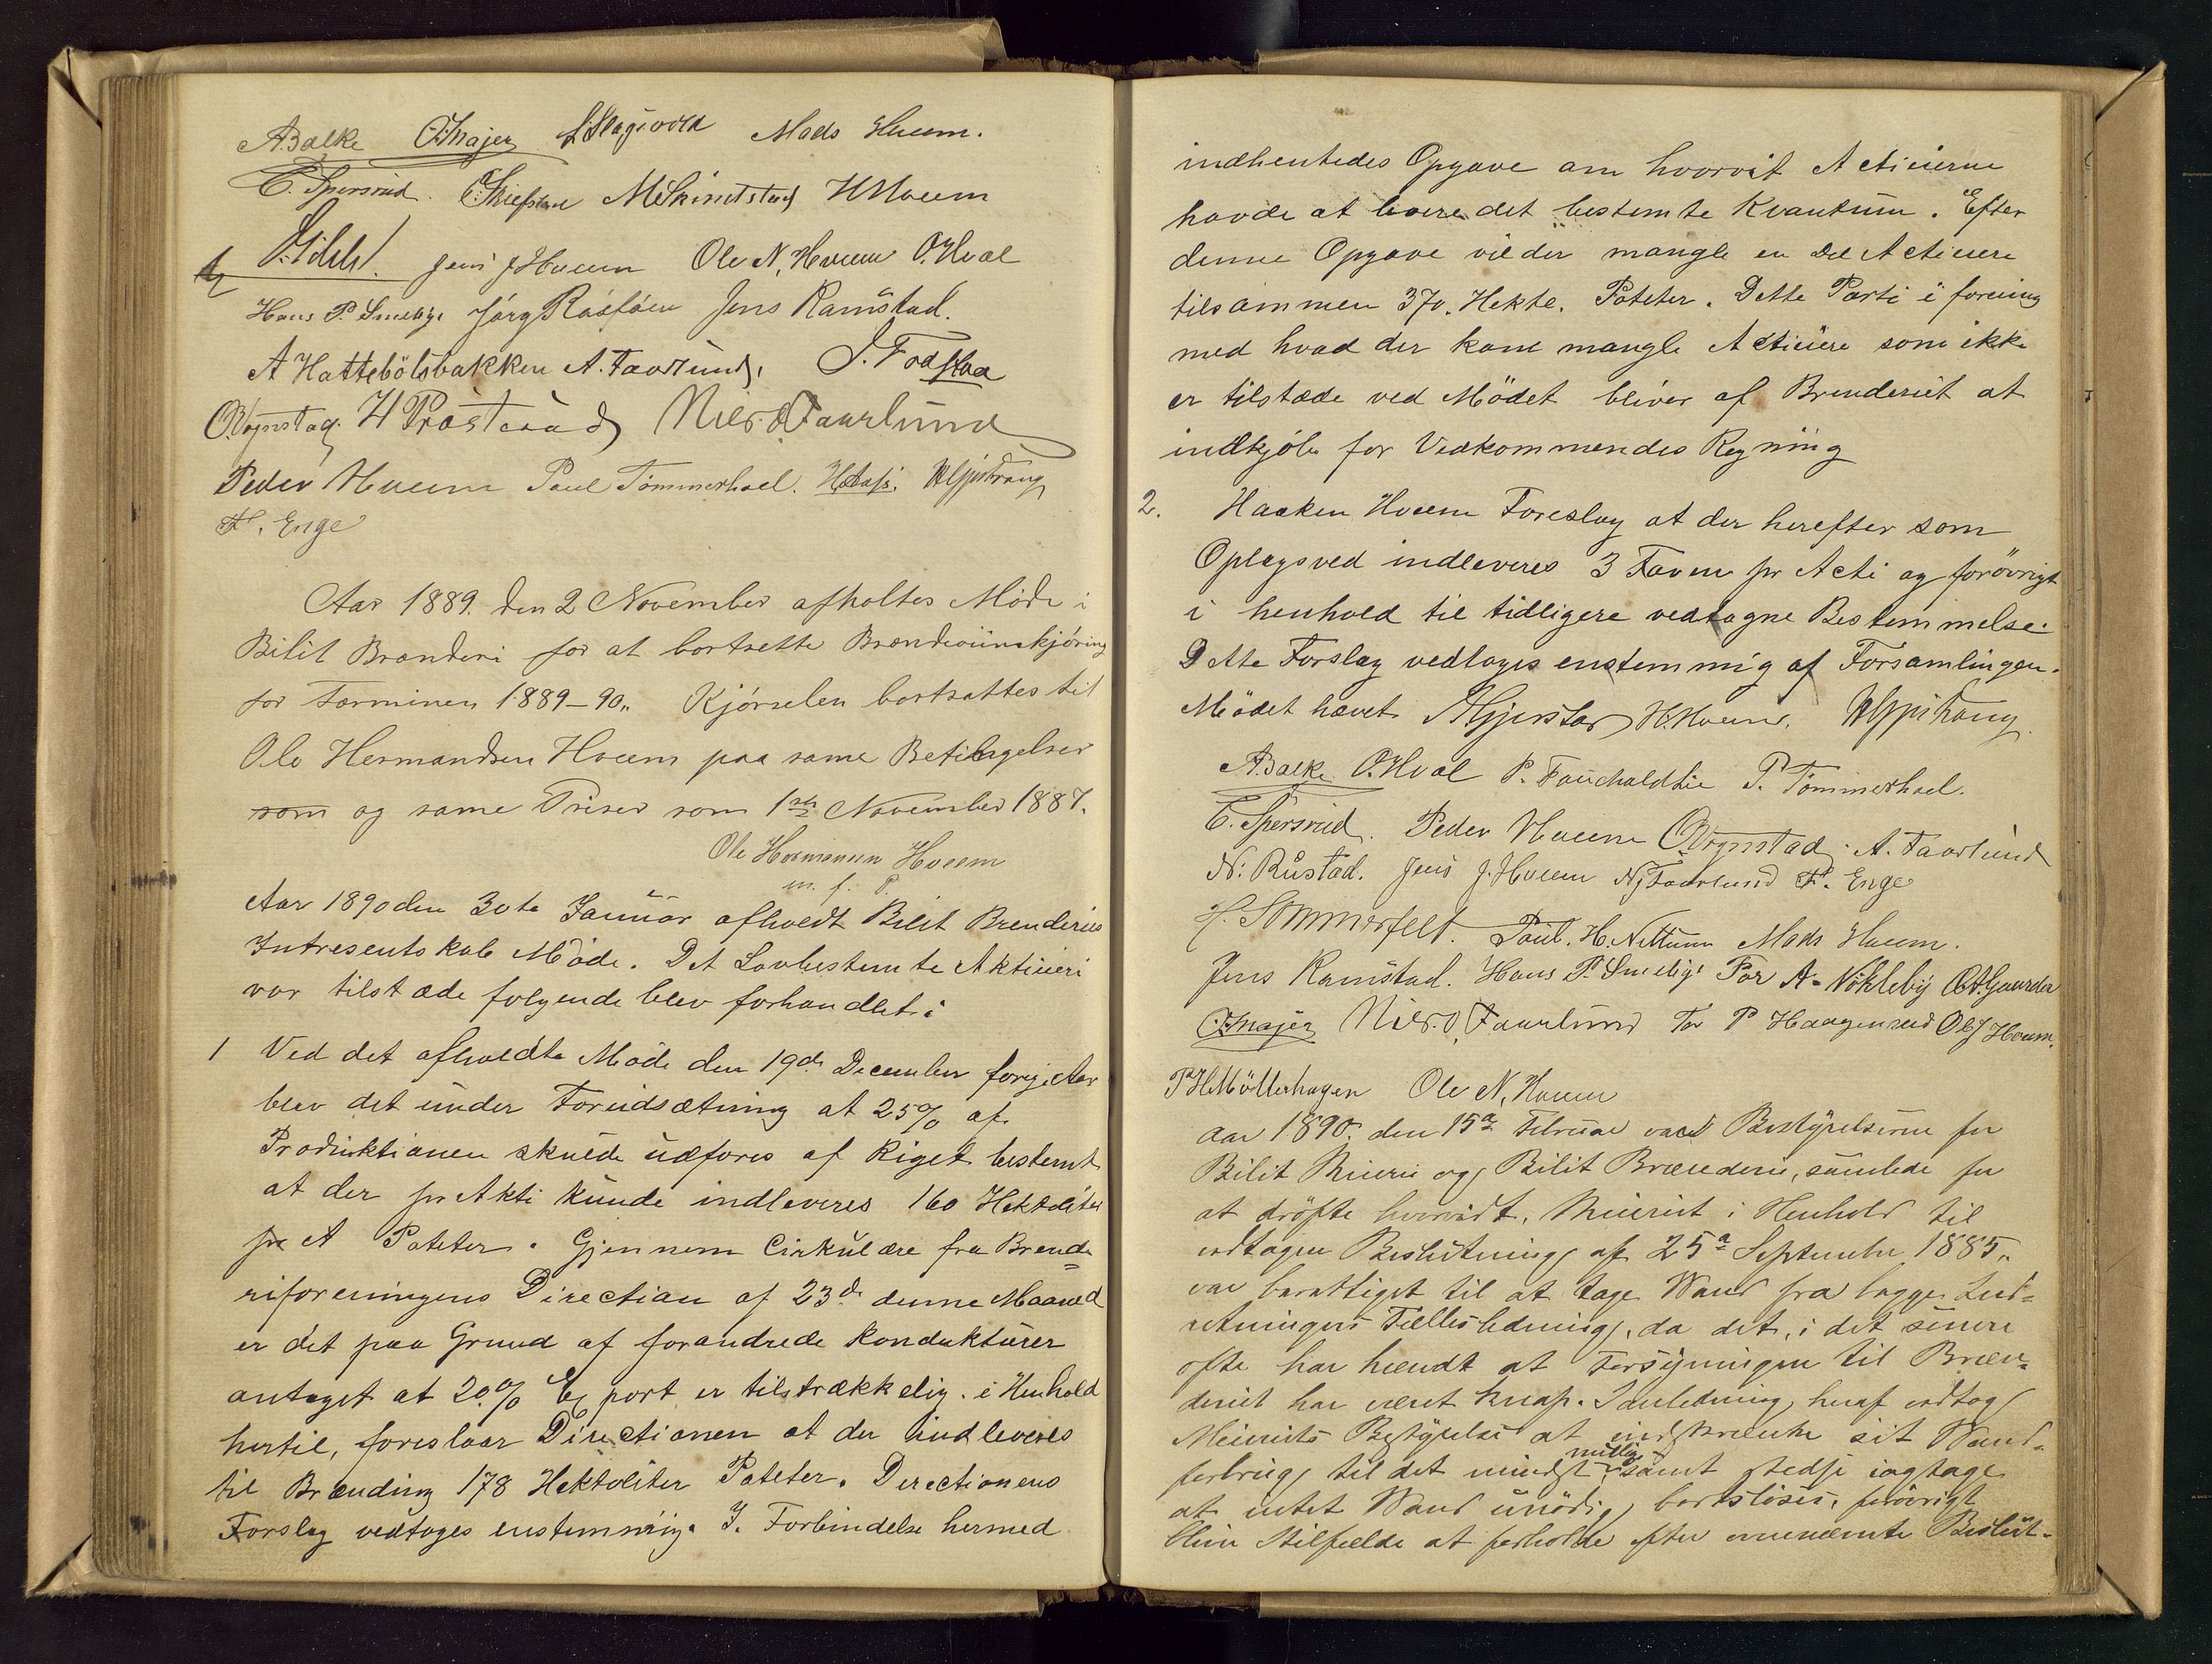 A. Balke O. Majer Mads Hveem.
E. Spersrud. M Skindstad H Hveem
Jens J Hveem Ole N. Hveem O. Hval
Hans P. Smeby Jens Ramstad.
A Hattebölsbakken A. Faarlund.
H Præstrud Niels O Faarlund
Peder Hveem Paul Tömmerhoel.
H. Enge
Aar 1889. den 2 November afholtes Möde i
Bilit Brænderi for at bortsette Brændeviinskjöring
for Terminen 1889-90„ Kjörselen bortsattes til
Ole Hermandsen Hveem paa same Betilgelser
som og same Priser som 1ste November 1887.
Ole Hermansen Hveem
m. f. P.
Aar 1890 den 30te Januar afholdt Bilit Brenderies
Intresentskab Möde. Det Lovbestemte Aktieieri
var tilstæde følgende blev forhandlet:
1 Ved det afholdte Möde den 19de December forige Aar
blev det under Forudsætning at 25% af
Produktionen skulde udføres af Riget bestemt
at der pr Akti kunde indleveres 160 Hektoliter
pr A Poteter. Gjennem Cirkulære fra Brende=
riforeningens Direction af 23de denne Maaned
er det paa Grund af forandrede Kondukturer
antaget at 20% Export er tilstrækkelig. i Henhold
hertil, foreslaar Directionen at der indleveres
til Brænding 178 Hektoliter Poteter. Directionens
Forslag vedtoges enstemmig. I Forbindelse hermed
indhentedes Opgave om hvorvit Actieierne
havde at levere det bestemte Kvantum. Efter
denne Opgave vil der mangle en Del Actieiere
tilsammen 370. Hekte. Poteter. Dette Parti i forening
med hvad der kane mangle Actieiere som ikke
er tilstæde ved Mödet bliver af Brenderiet at
indkjöbe for Vedkommendes Regning
2. Haaken Hveem Foreslog at der herefter som
Oplagsved indleveres 3 Favne pr Acti og forövrigt
i henhold til tidligere vedtagne Bestemmelse.
Dette Forslag vedtoges enstemmig af Forsamlingen.
Mödet hævet. A Gjerstad H. Hveem.
A. Balke O. Hval P. Fauchaldlie P. Tömmerhoel.
E. Spersrud. Peder Hveem A. Faarlund
N. Rustad. Jens J. Hveem N J Faarlund H. Enge
H. Sommerfelt. Paul. H. Nettum Mads Hveem.
Jens Ramstad. Hans P. Smeby For A. Nökleby O A. Gaarder
O. Majer Niels. O. Faarlund For P Haagensrud Ole J Hveem.
P H Möllerhagen Ole N. Hveem
Aar 1890. den 15de Februar vare Bestyrelserne for
Bilit Mieeri og Bilit Brænderie, samlede for
at dröfte hvorvidt, Mieeriet i Henhold til
vedtagen Beslutning af 25de September 1885„
var berettiget til at tage Vand fra begge Ind=
retningers Fællesledning, da det, i det senere
ofte har hændt at Forsyningen til Bræn=
deriet har været knap. I anledning heraf vedtog
Meieriets Bestyrelse at indskrænke sit Vand=
forbrug til det mindst mulige samt stedse iagtage
at intet Vand unödig bortslöses, forövrigt
blive i tilfælde at forholde efter ovennævnte Beslut=